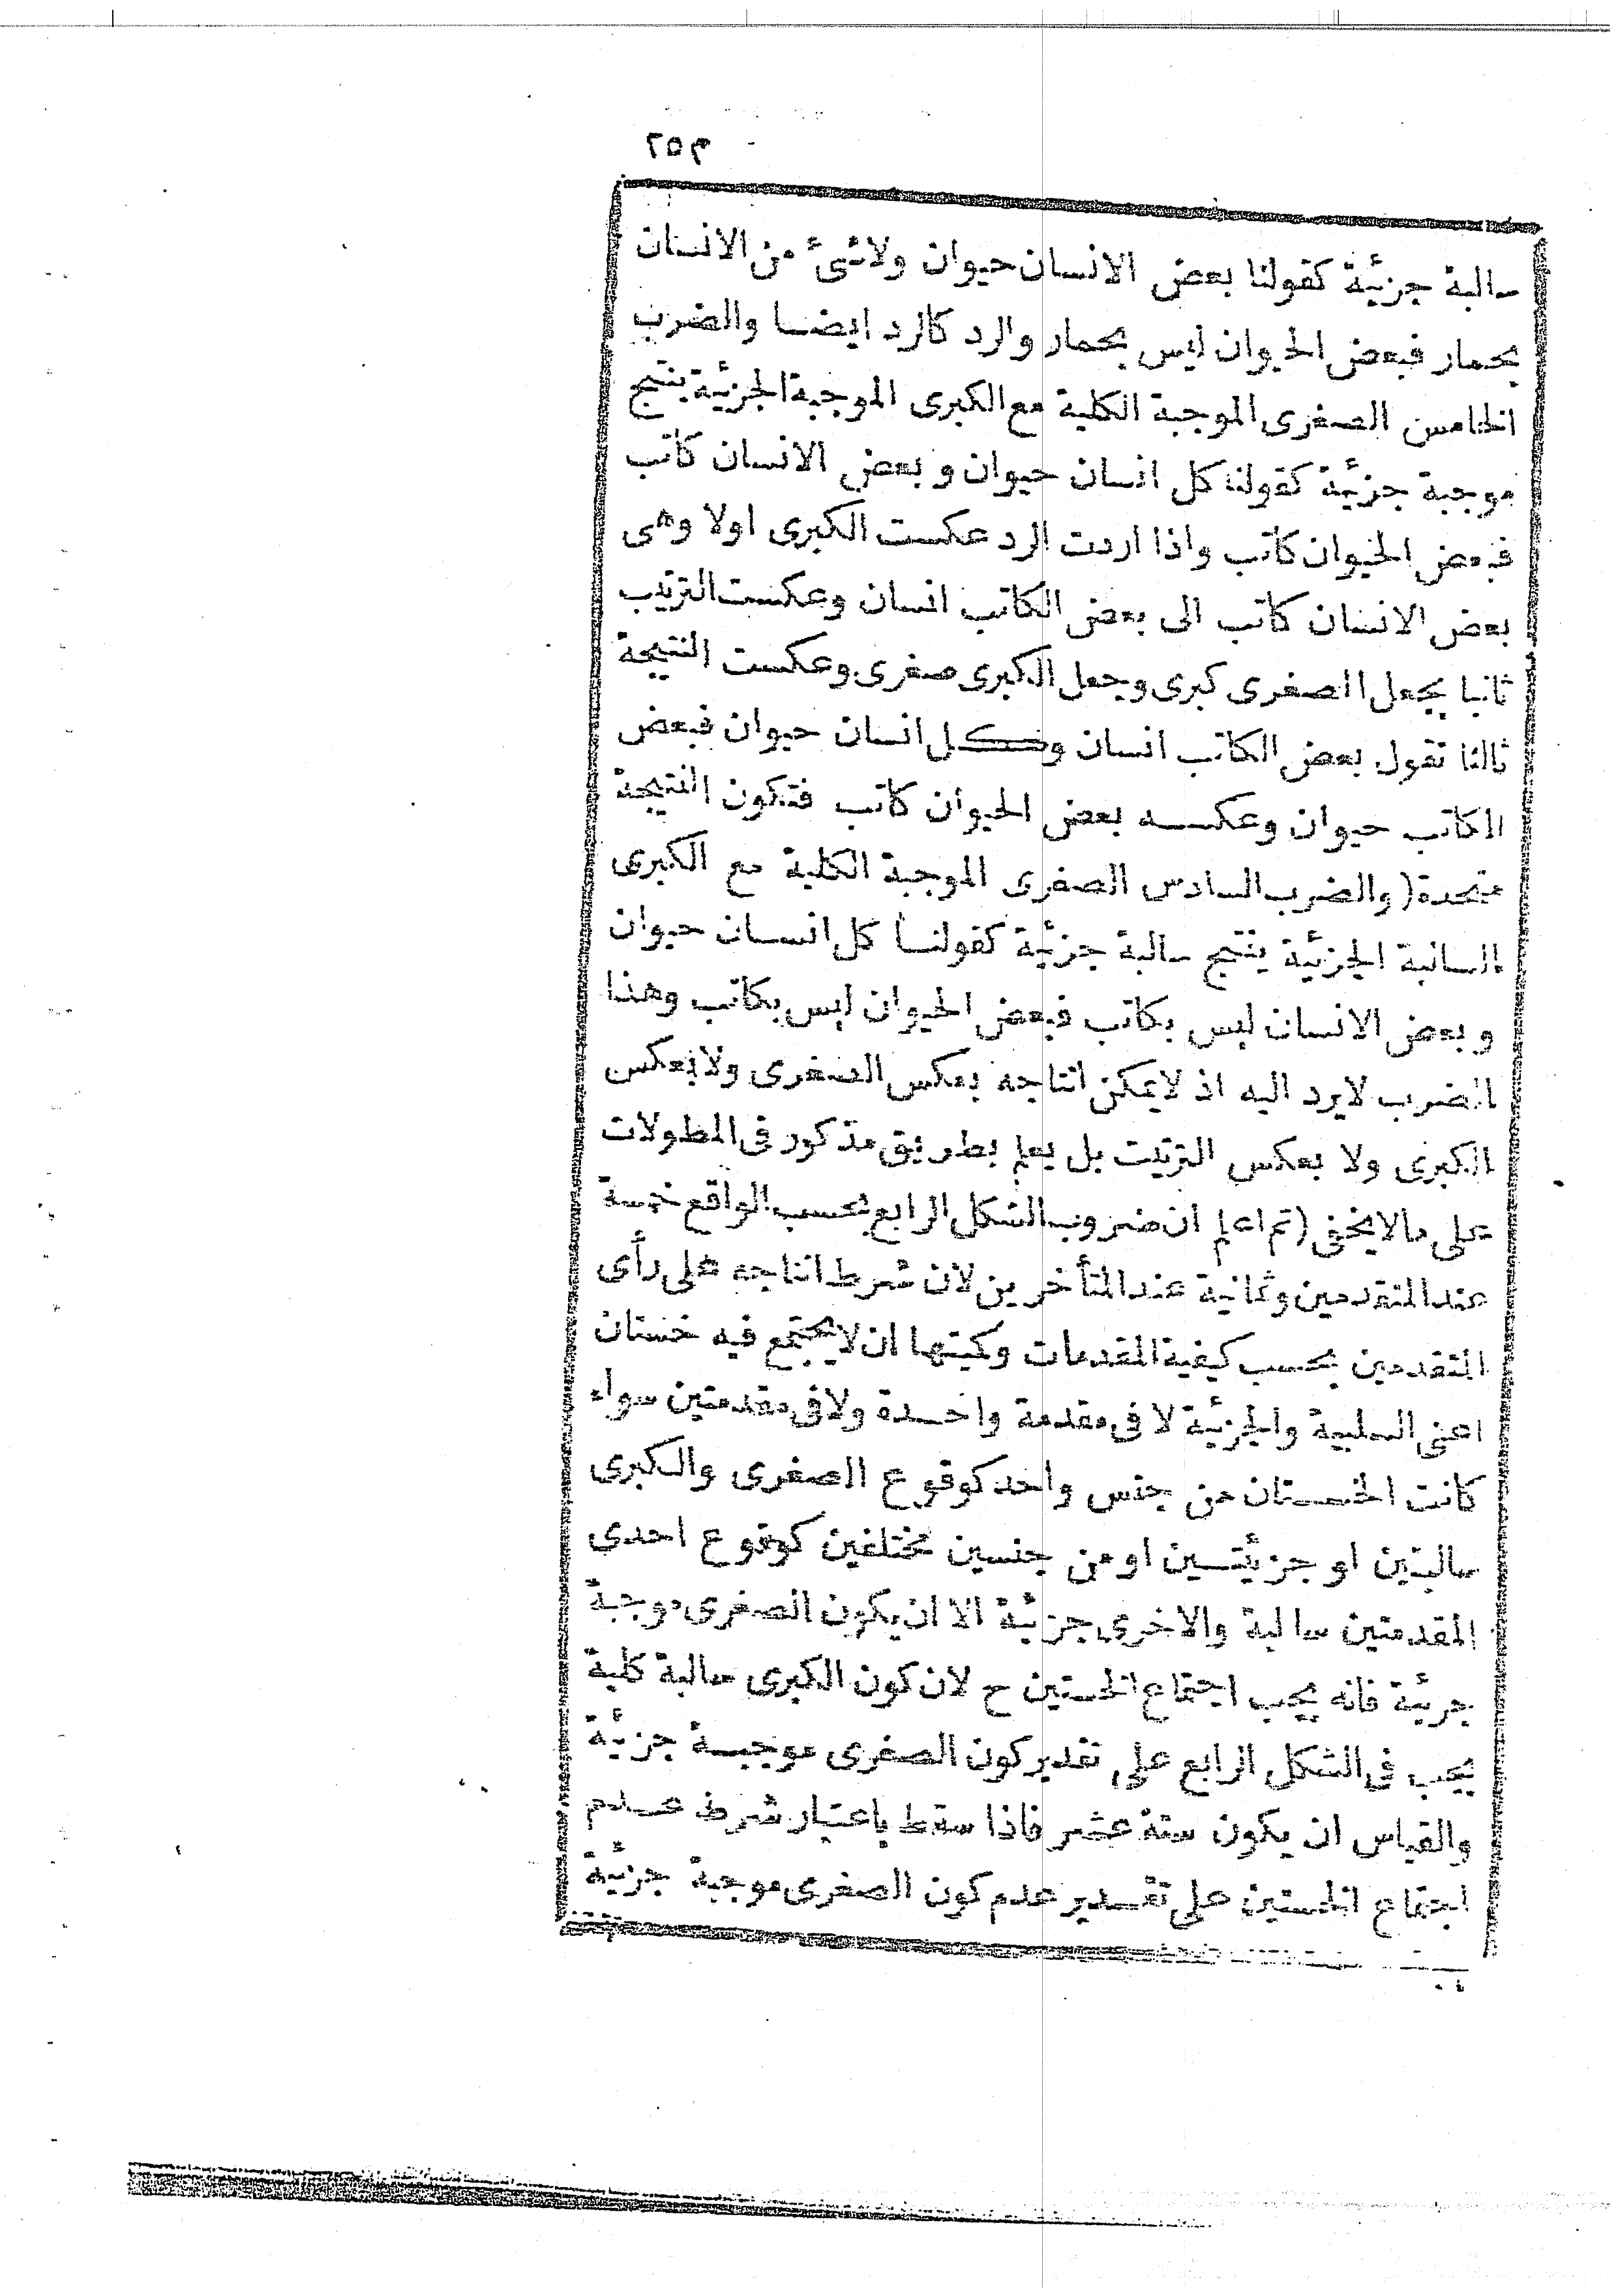 ٢٥٣
سالبة جزئية كقولنا بعض الانسان حيوان ولاشئ من الانسان
بحمار فبعض الحيوان ليس بحمار والرد كالرد ايضا والضرب
الخامس الصغرى الموجبة الكلية مع الكبرى الموجبة الجزئية ينتج
موجبة جزئية كقولنا كل انسان حيوان وبعض الانسان كاتب
فبعض الحيوان كاتب واذا اردت الرد عكست الكبرى اولا وهى
بعض الانسان كاتب الى بعض الكاتب انسان وعكست الترتيب
ثانيا بجعل الصغرى كبرى وجعل الكبرى صغرى وعكست النتيجة
ثالثا تقول بعض الكاتب انسان وكل انسان حيوان فبعض
الكاتب حيوان وعكسه بعض الحيوان كاتب فتكون النتيجة
متحدة (والضرب السادس الصغرى الموجبة الكلية مع الكبرى
السالبة الجزئية ينتج سالبة جزئية كقولنا كل انسان حيوان
وبعض الانسان ليس بكاتب فبعض الحيوان ليس بكاتب وهذا
الضرب لايرد اليه اذ لايمكن انتاجه بعكس الصغرى ولا بعكس
الكبرى ولا بعكس الترتيت بل يعلم بطريق مذكور فى المطولات
على مالايخفى (ثم اعلم ان ضروب الشكل الرابع بحسب الواقع خمسة
عند المتقدمين وثمانية عند المتأخرين لان شرط انتاجه على رأى
المتقدمين بحسب كيفية المقدمات وكميتها ان لايجتمع فيه خستان
اعنى السلبية والجزئية لا فى مقدمة واحدة ولا فى مقدمتين سواء
كانت الخستان من جنس واحد كوقوع الصغرى والكبرى
سالبتين او جزئيتين او من جنسين مختلفين كوقوع احدى
المقدمتين سالبة والاخرى جزئية الا ان يكون الصغرى موجبة
جزئية فانه يجب اجتماع الخستين ح لان كون الكبرى سالبة كلية
يجب فى الشكل الرابع على تقدير كون الصغرى موجبة جزئية
والقياس ان يكون ستة عشر فاذا سقط باعتبار شرط عدم
اجتماع الخستين على تقدير عدم كون الصغرى موجبة جزئية